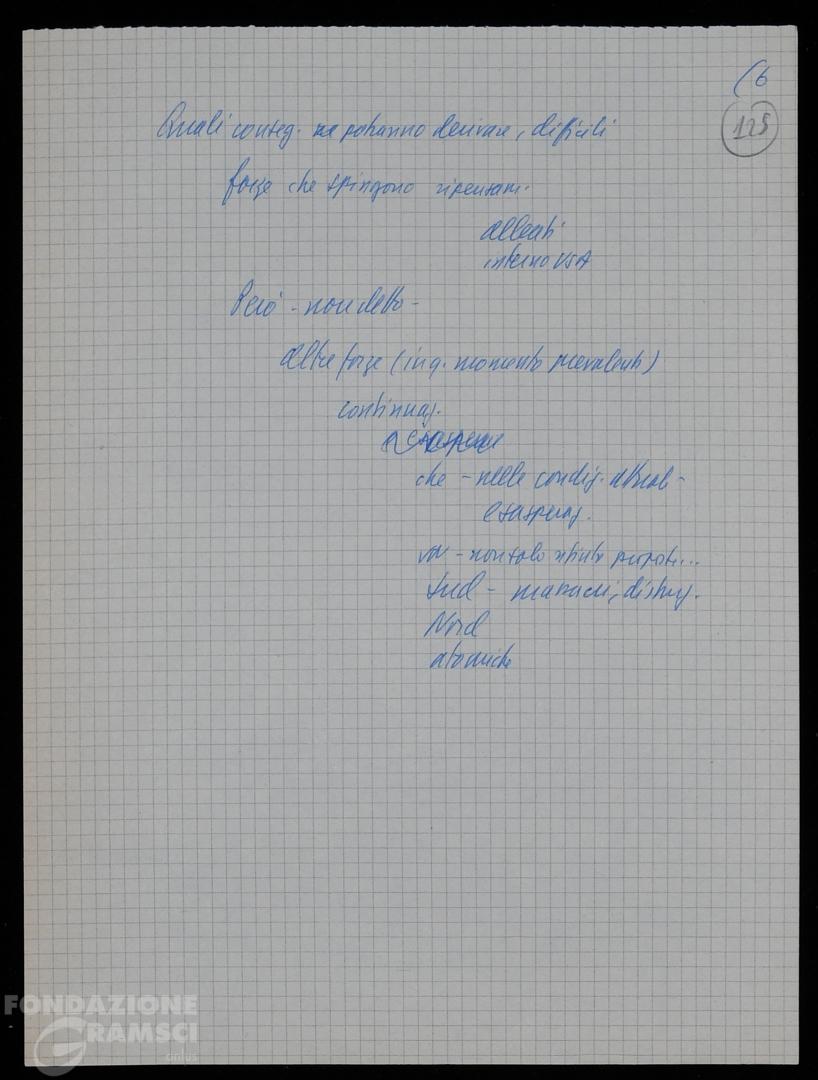 (6
125
Quali conseg. ne potranno derivare, difficili
forze che spingono ripensam.
alleati
interno USA
Però - non detto -
altre forze (in q. momento prevalenti)
continuaz.
che - nelle condiz. attuali -
esasperaz.
non solo rifiuto proposte...
Sud - massacri, distruz.
Nord
atomiche
FONDAZIONE
GRAMSCI
onlus